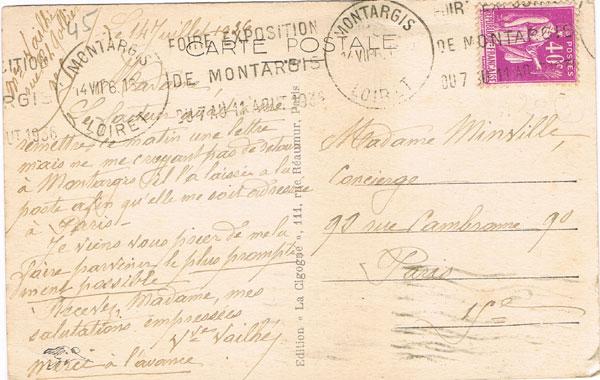 45
Le 14 Juillet 1936
CARTE POSTALE
FOIRE EXPOSITION
DE MONTARGIS
DU 7 AU 11 AOUT 1936
MONTARGIS
LOIRET
MONTARGIS
LOIRET
DE MONTARGIS
40c
Madame
Le facteur
remettre ce matin une lettre
mais ne me croyant pas de retour
à Montargis il l'a laissée à la
poste afin qu'elle me soit adressée
à Paris -
Je viens vous prier de me la
faire parvenir le plus prompte
ment possible
Recevez, Madame, mes
salutations empressées
Vve Vailhé
merci à l'avance
Edition « La Cigogne », 111, rue Réaumur, Paris
Madame Minville,
Concierge
90 rue Cambronne 90
Paris
15e